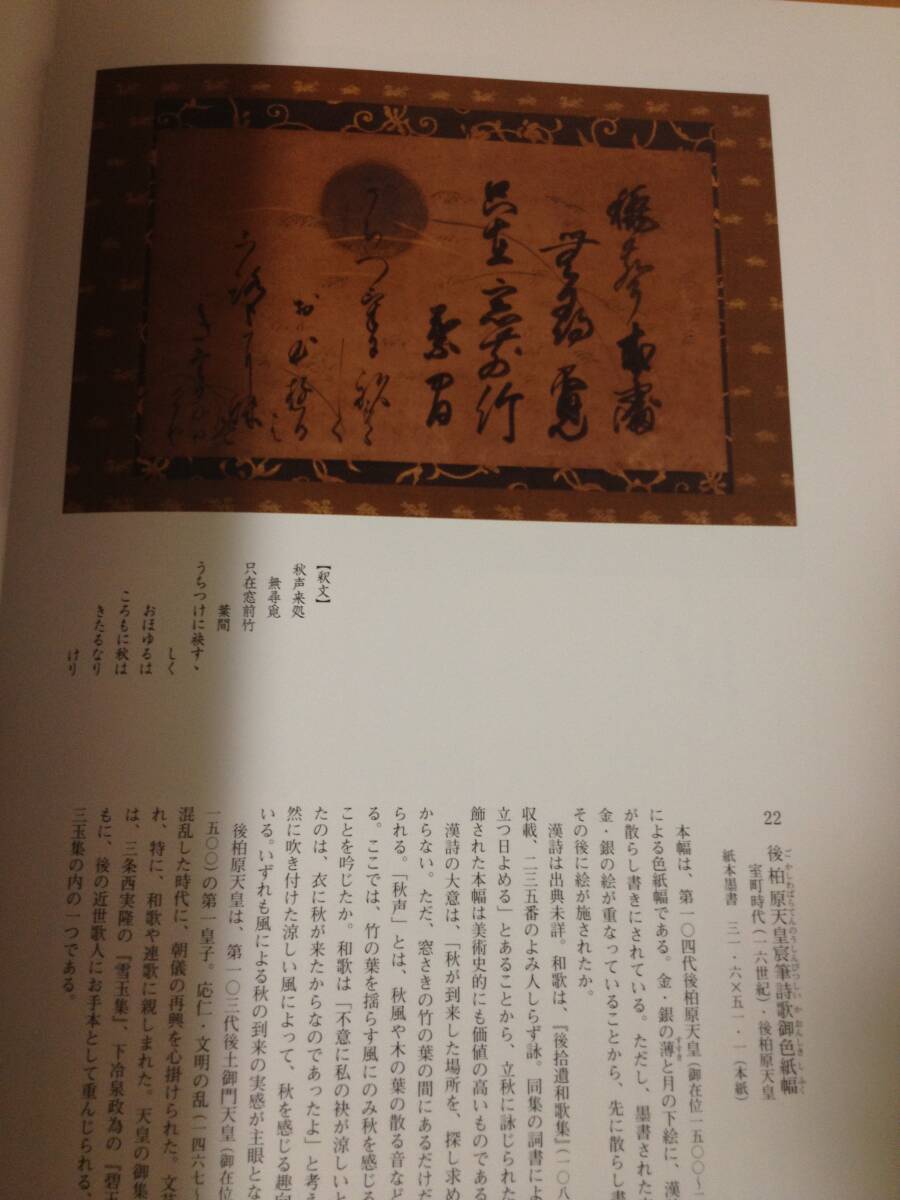 【釈文】
秋声来処
無尋覓
只在窓前竹
葉間
うちつけに袂すゝ
しく
おほゆるは
ころもに秋は
きたるなり
けり
22 後柏原天皇宸筆詩歌御色紙幅
室町時代（一六世紀）・後柏原天皇
紙本墨書 三一・六×五一・一（本紙）
本幅は、第一〇四代後柏原天皇（御在位一五〇〇〜
による色紙幅である。金・銀の薄と月の下絵に、漢
が散らし書きにされている。ただし、墨書された
金・銀の絵が重なっていることから、先に散らし書
その後に絵が施されたか。
漢詩は出典未詳。和歌は、『後拾遺和歌集』（一〇八
収載、二三五番のよみ人しらず詠。同集の詞書によ
立つ日よめる」とあることから、立秋に詠じられた
飾された本幅は美術史的にも価値の高いものである
漢詩の大意は、「秋が到来した場所を、探し求め
からない。ただ、窓さきの竹の葉の間にあるだけだ
られる。「秋声」とは、秋風や木の葉の散る音など
る。ここでは、竹の葉を揺らす風にのみ秋を感じる
ことを吟じたか。和歌は「不意に私の袂が涼しいと
たのは、衣に秋が来たからなのであったよ」と考え
然に吹き付けた涼しい風によって、秋を感じる趣向
いる。いずれも風による秋の到来の実感が主眼とな
後柏原天皇は、第一〇三代後土御門天皇（御在位
一五〇〇）の第一皇子。応仁・文明の乱（一四六七〜
混乱した時代に、朝儀の再興を心掛けられた。文芸
れ、特に、和歌や連歌に親しまれた。天皇の御集
は、三条西実隆の『雪玉集』、下冷泉政為の『碧玉
もに、後の近世歌人にお手本として重んじられる、
三玉集の内の一つである。